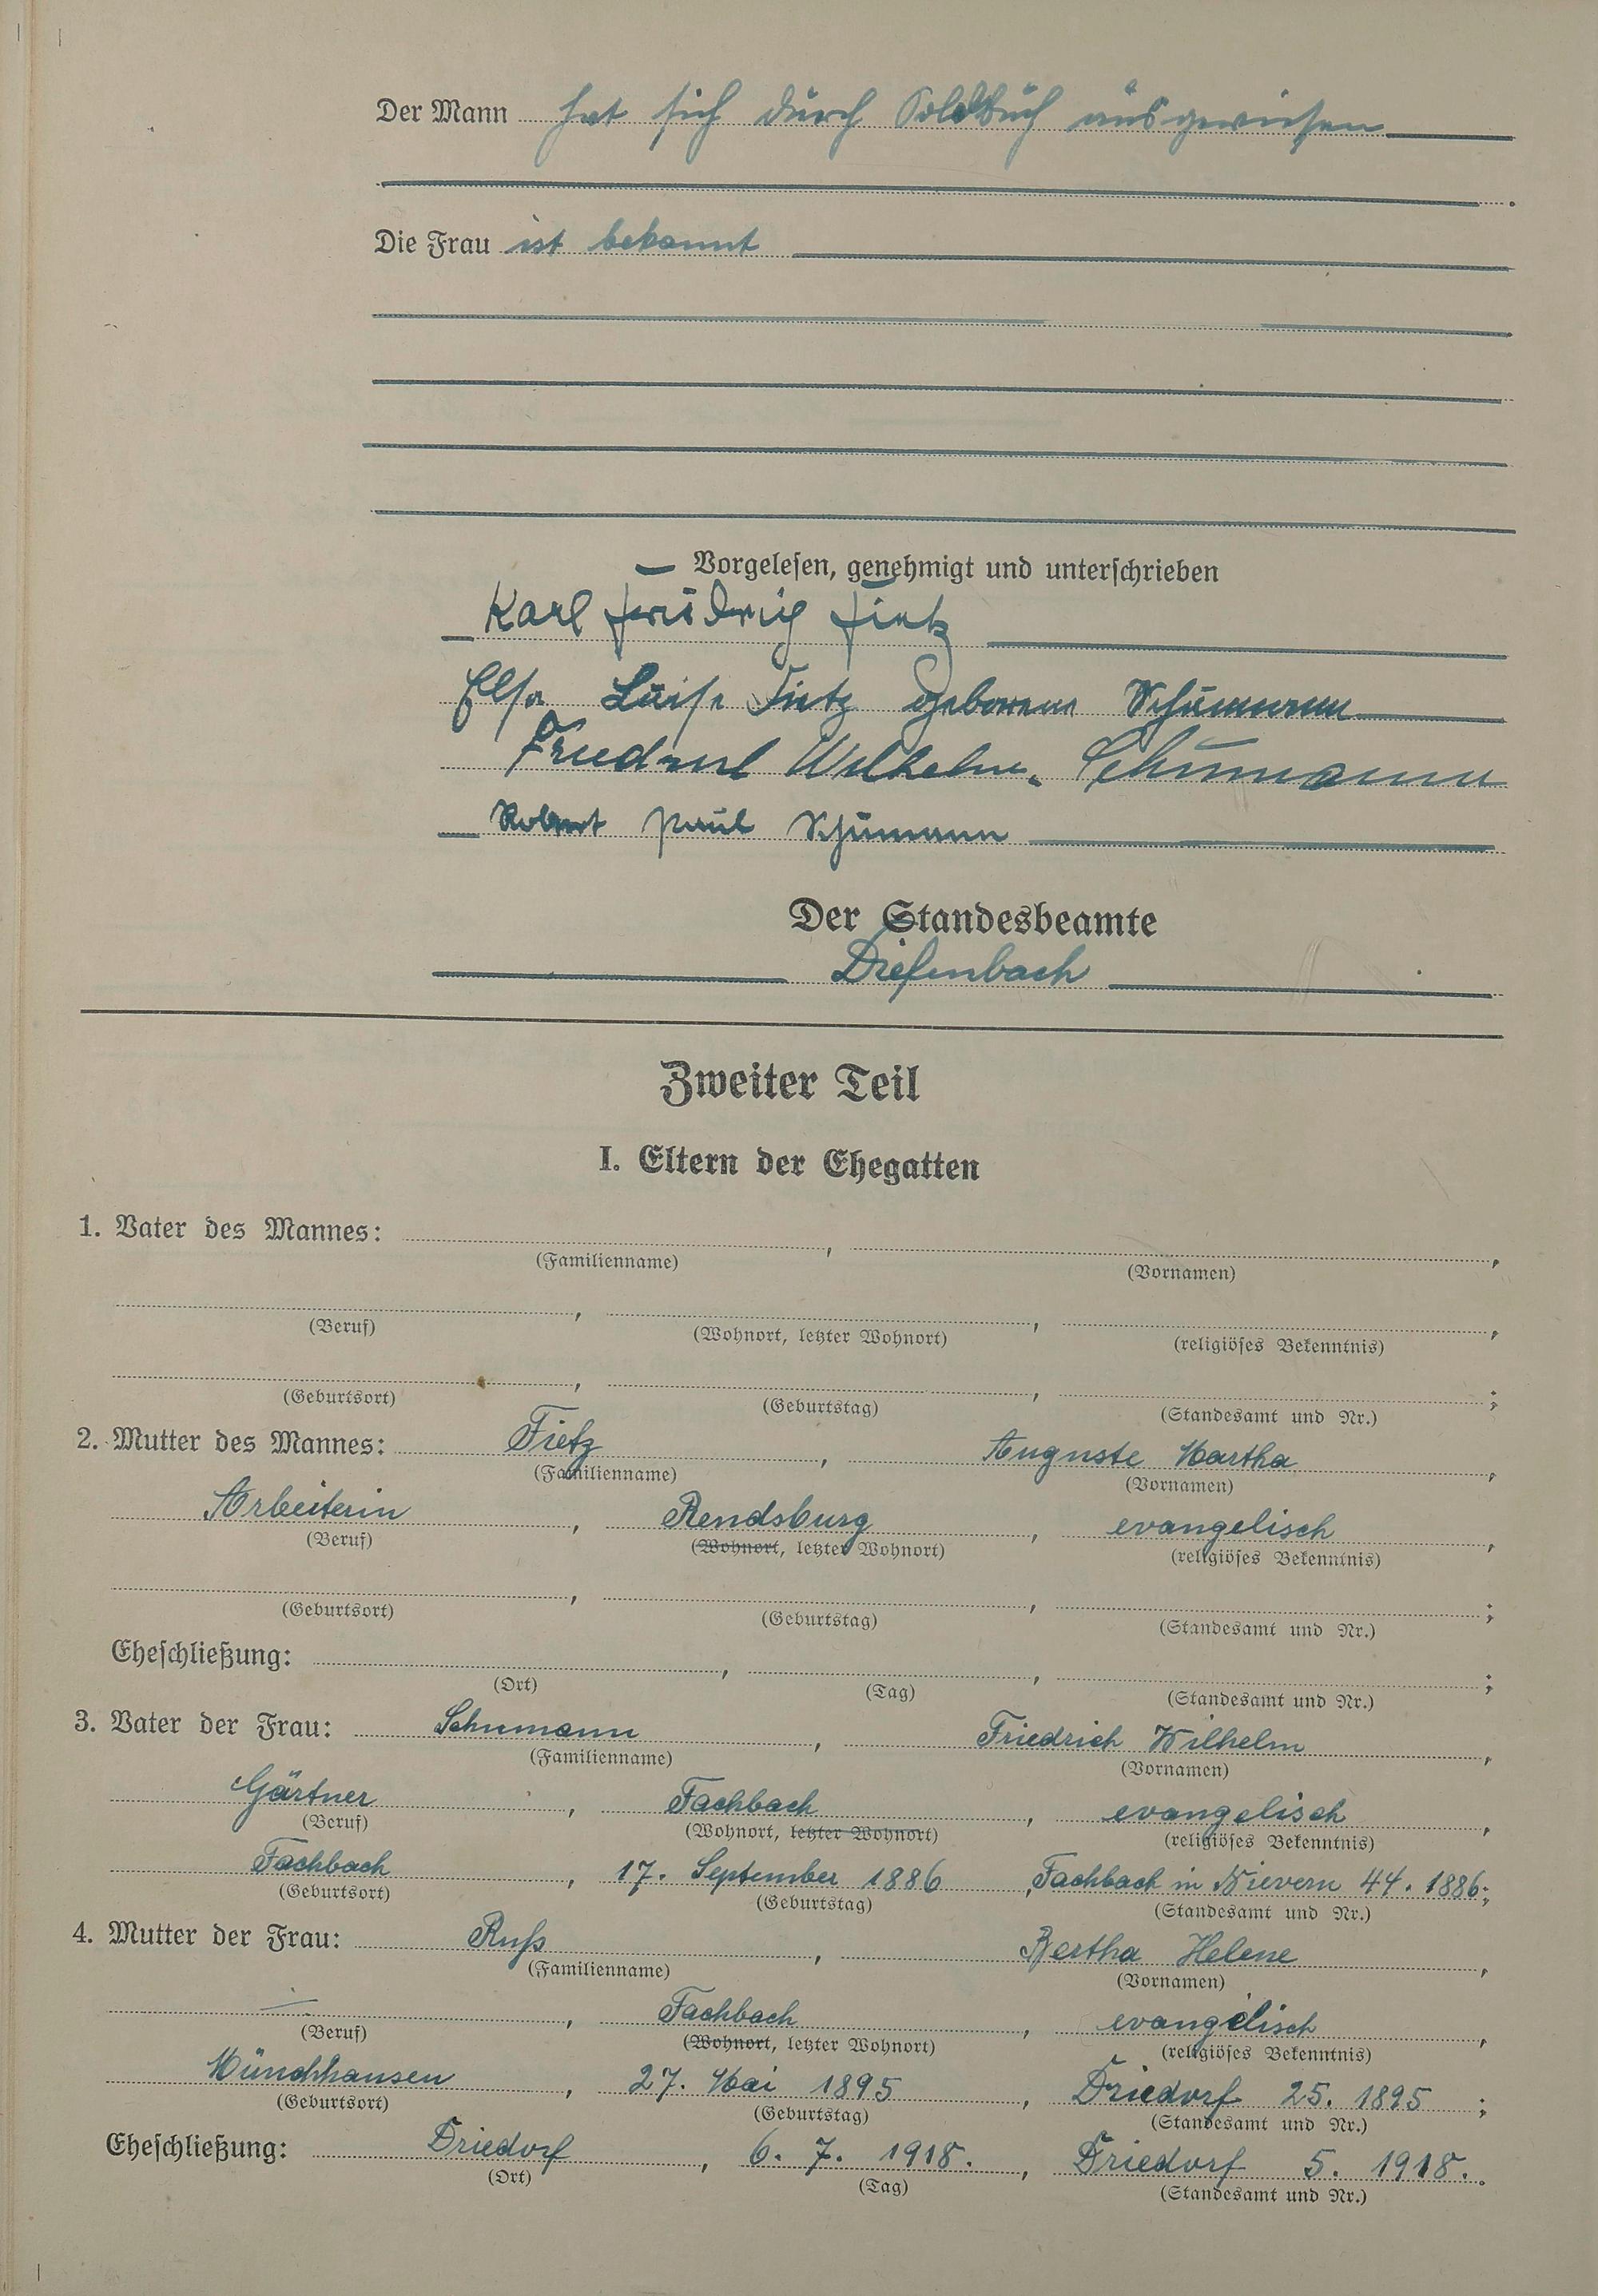 Der Mann hat sich durch Soldbuch ausgewiesen
.
Die Frau ist bekannt
Vorgelesen, genehmigt und unterschrieben
Karl Friedrich Fietz
Elsa Luise Fietz geborene Schumann
Friedrich Wilhelm Schumann
Robert Paul Schumann
Der Standesbeamte
Diefenbach
Zweiter Teil
I. Eltern der Ehegatten
1. Vater des Mannes: , ,
(Familienname) (Vornamen)
, , ,
(Beruf) (Wohnort, letzter Wohnort) (religiöses Bekenntnis)
, , ;
(Geburtsort) (Geburtstag) (Standesamt und Nr.)
2. Mutter des Mannes: Fietz , Auguste Martha ,
(Familienname) (Vornamen)
Arbeiterin , Rendsburg , evangelisch ,
(Beruf) (Wohnort, letzter Wohnort) (religiöses Bekenntnis)
, , ;
(Geburtsort) (Geburtstag) (Standesamt und Nr.)
Eheschließung: , , ;
(Ort) (Tag) (Standesamt und Nr.)
3. Vater der Frau: Schumann , Friedrich Wilhelm ,
(Familienname) (Vornamen)
Gärtner , Fachbach , evangelisch ,
(Beruf) (Wohnort, letzter Wohnort) (religiöses Bekenntnis)
Fachbach , 17. September 1886 , Fachbach in Nievern 44. 1886 ;
(Geburtsort) (Geburtstag) (Standesamt und Nr.)
4. Mutter der Frau: Ruß , Bertha Helene ,
(Familienname) (Vornamen)
— , Fachbach , evangelisch ,
(Beruf) (Wohnort, letzter Wohnort) (religiöses Bekenntnis)
Münchhausen , 27. Mai 1895 , Driedorf 25. 1895 ;
(Geburtsort) (Geburtstag) (Standesamt und Nr.)
Eheschließung: Driedorf , 6. 7. 1918. , Driedorf 5. 1918. .
(Ort) (Tag) (Standesamt und Nr.)